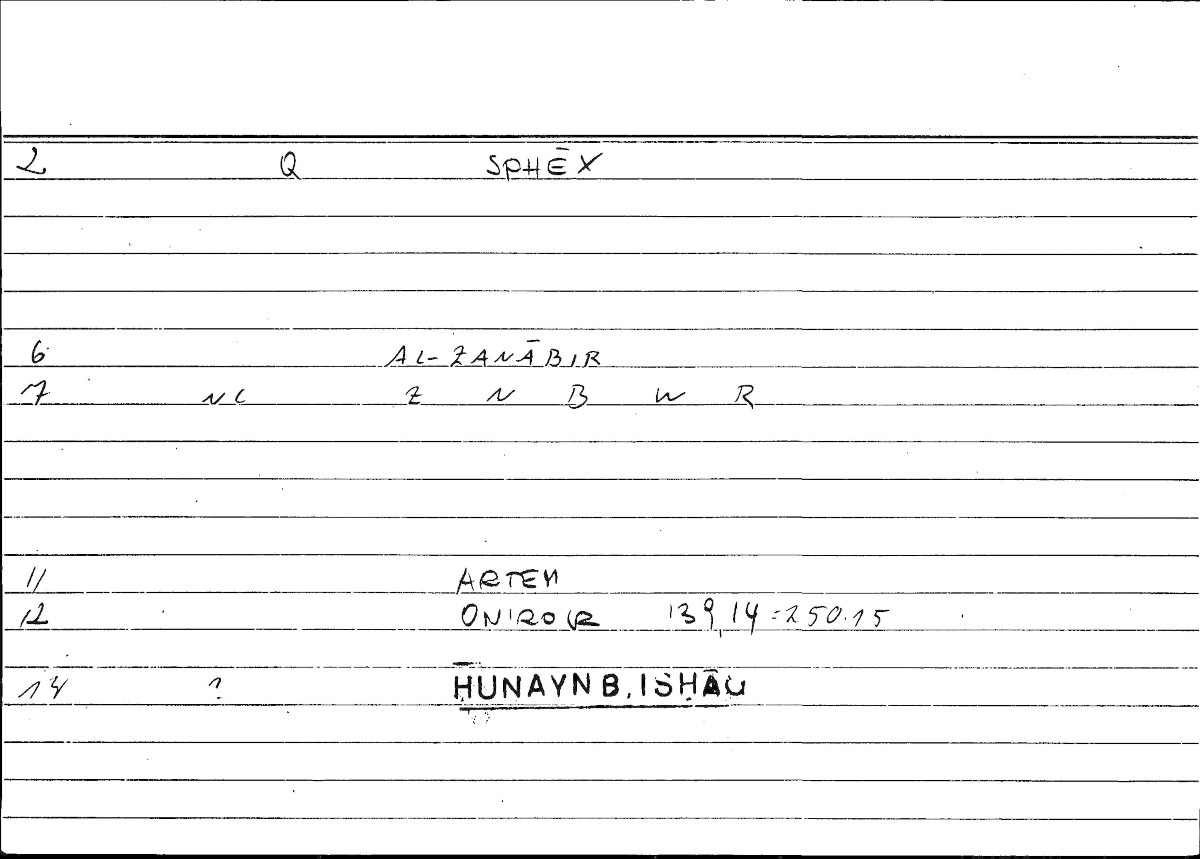 2 Q SPHĒX
6 AL-ZANĀBIR
7 NC Z N B W R
11 ARTEM
12 ONIROCR 139,14=250.15
14 ? ḤUNAYN B. ISḤĀQ